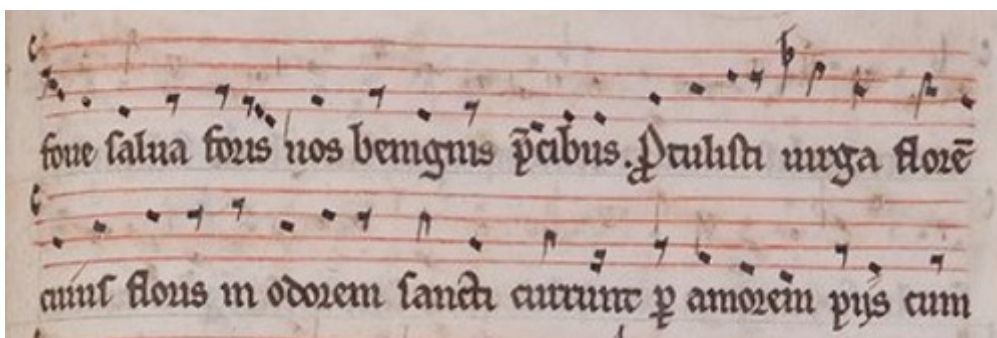 foue salua foris nos benignis p̄cibus. Ꝓtulisti uirga florē
cuius floris in odorem sancti currunt ꝑ amorem pijs cum